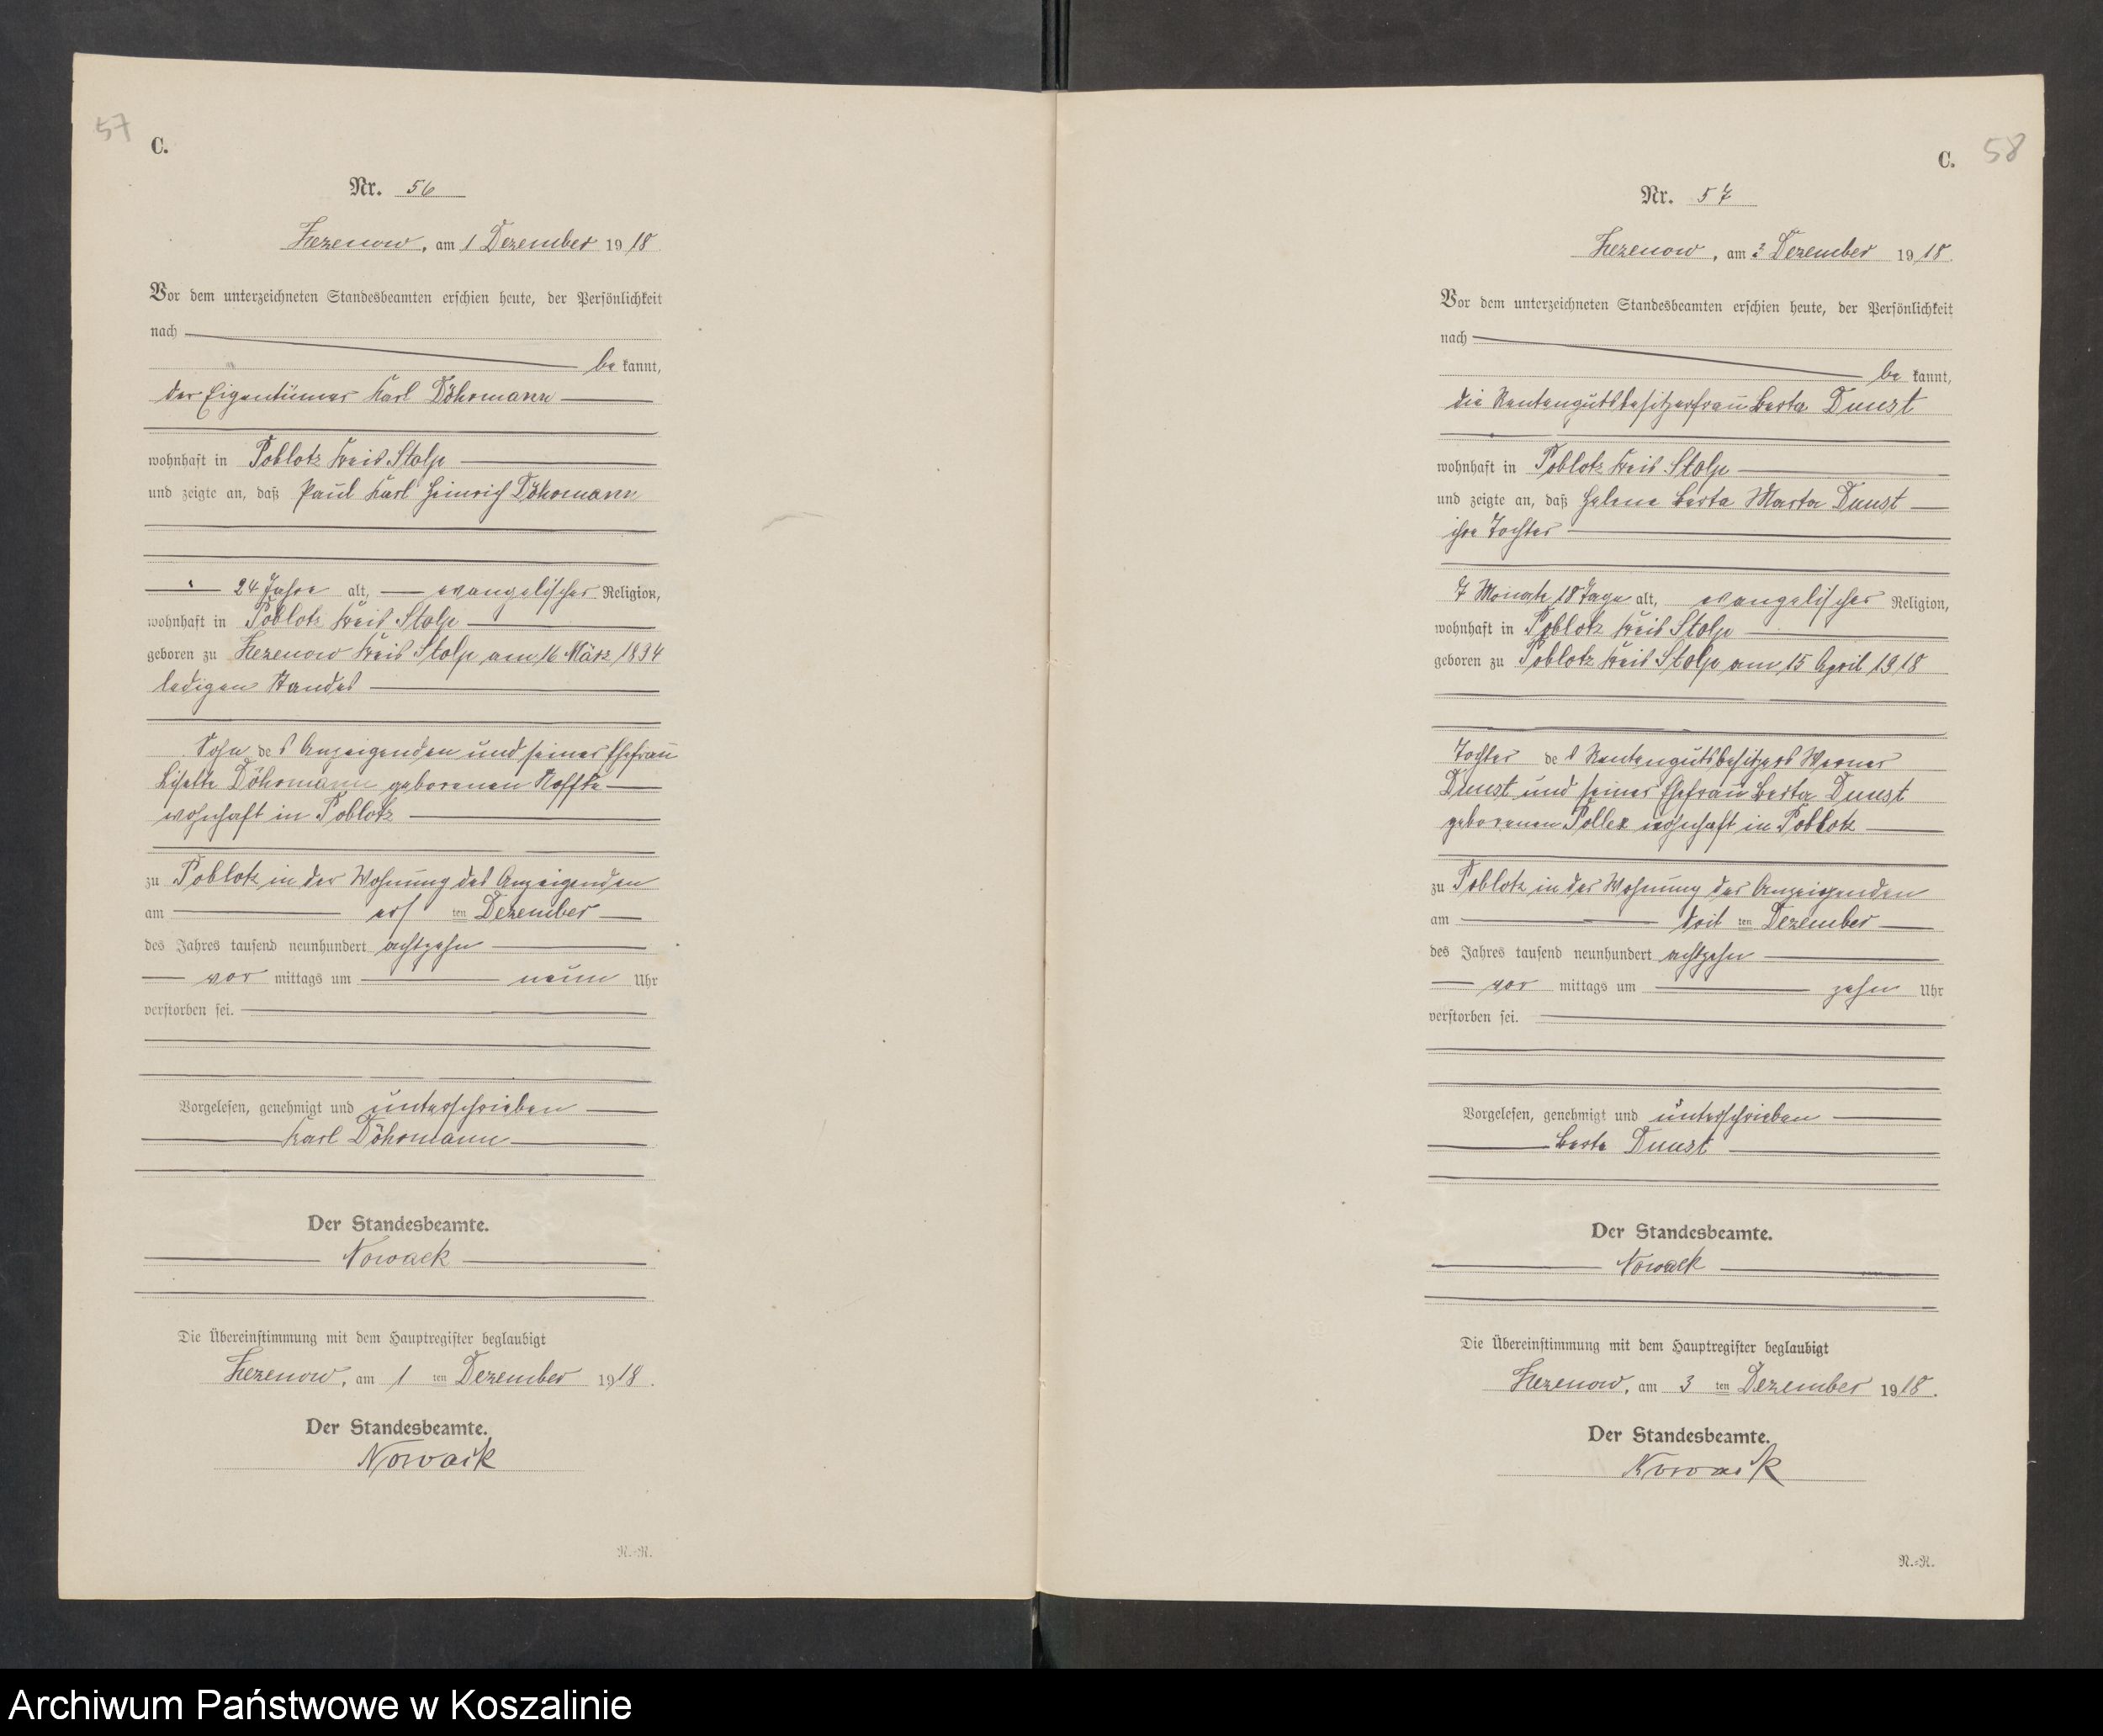 57
C.
Nr. 56
Zezenow, am 1 Dezember 1918.
Vor dem unterzeichneten Standesbeamten erschien heute, der Persönlichkeit
nach
be kannt,
der Eigentümer Karl Döhrmann
wohnhaft in Poblotz Kreis Stolp
und zeigte an, daß Paul Karl Heinrich Döhrmann
24 Jahre alt, evangelischer Religion,
wohnhaft in Poblotz Kreis Stolp
geboren zu Zezenow Kreis Stolp am 16 März 1894
ledigen Standes
Sohn des Anzeigenden und seiner Ehefrau
Lisette Döhrmann geborenen Noffke
wohnhaft in Poblotz
zu Poblotz in der Wohnung des Anzeigenden
am ersten Dezember
des Jahres tausend neunhundert achtzehn
vor mittags um neun Uhr
verstorben sei.
Vorgelesen, genehmigt und unterschrieben
Karl Döhrmann
Der Standesbeamte.
Nowack
Die Übereinstimmung mit dem Hauptregister beglaubigt
Zezenow, am 1 ten Dezember 1918.
Der Standesbeamte.
Nowack
R.-R.
58
C.
Nr. 57
Zezenow, am 3 Dezember 1918.
Vor dem unterzeichneten Standesbeamten erschien heute, der Persönlichkeit
nach
be kannt,
die Rentengutsbesitzerfrau Berta Dunst
wohnhaft in Poblotz Kreis Stolp
und zeigte an, daß Helene Berta Marta Dunst
ihre Tochter
7 Monate 18 Tage alt, evangelischer Religion,
wohnhaft in Poblotz Kreis Stolp
geboren zu Poblotz Kreis Stolp am 15 April 1918
Tochter des Rentengutsbesitzers Werner
Dunst und seiner Ehefrau Berta Dunst
geborenen Pollex wohnhaft in Poblotz
zu Poblotz in der Wohnung der Anzeigenden
am dritten Dezember
des Jahres tausend neunhundert achtzehn
vor mittags um zehn Uhr
verstorben sei.
Vorgelesen, genehmigt und unterschrieben
Berta Dunst
Der Standesbeamte.
Nowack
Die Übereinstimmung mit dem Hauptregister beglaubigt
Zezenow, am 3 ten Dezember 1918.
Der Standesbeamte.
Nowack
R.-R.
Archiwum Państwowe w Koszalinie